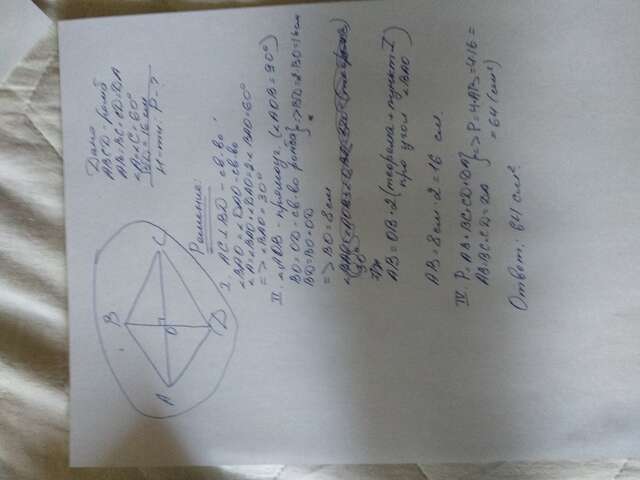 B
A
O
C
D
Дано
ABCD - ромб
AB=BC=CD=DA
∠A=∠C=60°
BD=16 см
Н-ти: P-?
Решение:
I. AC⊥BD - св-во
∠BAO=∠DAO - св-во
∠A=∠BAO+∠DAO=2·∠BAO=60°
=> ∠BAO=30°
II. ∠AOB - прямоуг. (∠AOB=90°)
BO=OD - св-во ромба } => BD=2·BO=16см
BD=BO+OD
=> BO=8см
30°
AB=OB·2 (теорема + пункт I
про угол ∠BAO)
AB=8см·2=16 см.
IV. P=AB+BC+CD+DA } => P=4·AB=4·16=
AB=BC=CD=DA
=64 (см²)
Ответ: 64 см².